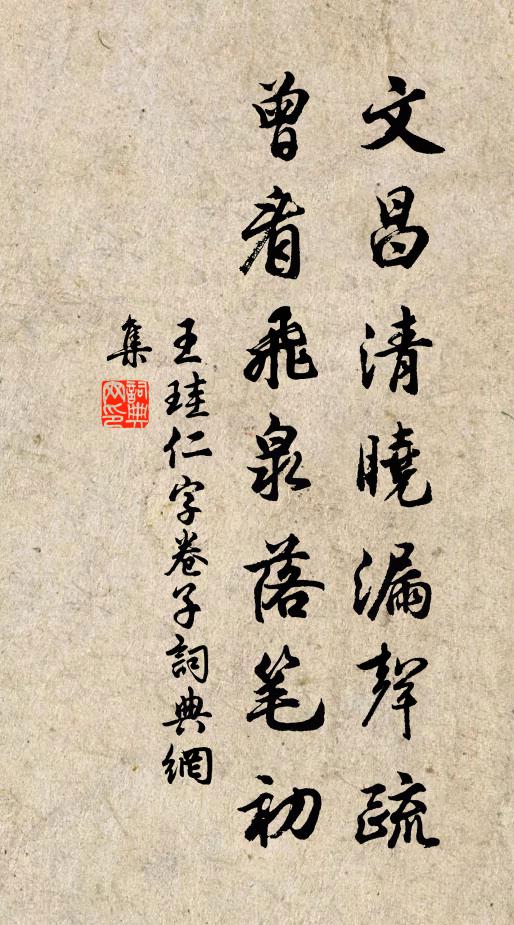 文昌清曉漏聲疏
曾看飛泉落笔初
王珪仁字卷子詞典網
集
詞典
网印